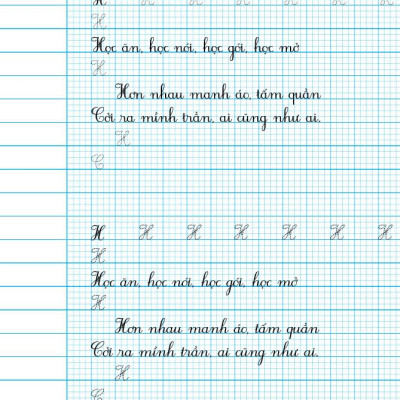 H H H H H H H
H
Học ăn, học nói, học gói, học mở
H
Hơn nhau manh áo, tấm quần
Cởi ra mình trần, ai cũng như ai.
H
C
H H H H H H H
H
Học ăn, học nói, học gói, học mở
H
Hơn nhau manh áo, tấm quần
Cởi ra mình trần, ai cũng như ai.
H
C